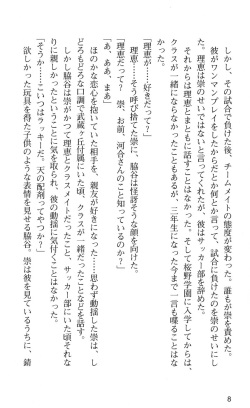 しかし、その試合で負けた後、チームメイトの態度が変わった。誰もが崇を責めた。
彼がワンマンプレイをしたからだとか何とか言って、試合に負けたのを崇のせいにし
た。理恵は崇のせいではないと言ってくれたが、彼はサッカー部を辞めた。
それからは理恵とまともに話すことはなかった。そして桜野学園に入学してからは、
クラスが一緒にならなかったこともあるが、二年生になった今まで一言も喋ることはな
かった。
「理恵が……好きだって？」
理恵……そう呼び捨てに崇に、脇谷は怪訝そうな顔を向けた。
「理恵だって？　崇、お前、河合さんのこと知っているのか？」
「あ、ああ、まあ」
ほのかな恋心を抱いていた相手を、親友が好きになった……思わず動揺した崇は、し
どろもどろな口調で武蔵ヶ丘付属にいた頃、クラスが一緒だったことなどを話す。
しかし脇谷は崇がかつて理恵とクラスメイトだったこと、サッカー部にいた頃それな
りに親しかったということに気を取られ、彼の動揺に気付くことはなかった。
「そうか……こいつはラッキーだ。天の配剤ってやつか？」
欲しかった玩具を得た子供のような表情を見せる脇谷。崇は彼を見ているうちに、錆
8